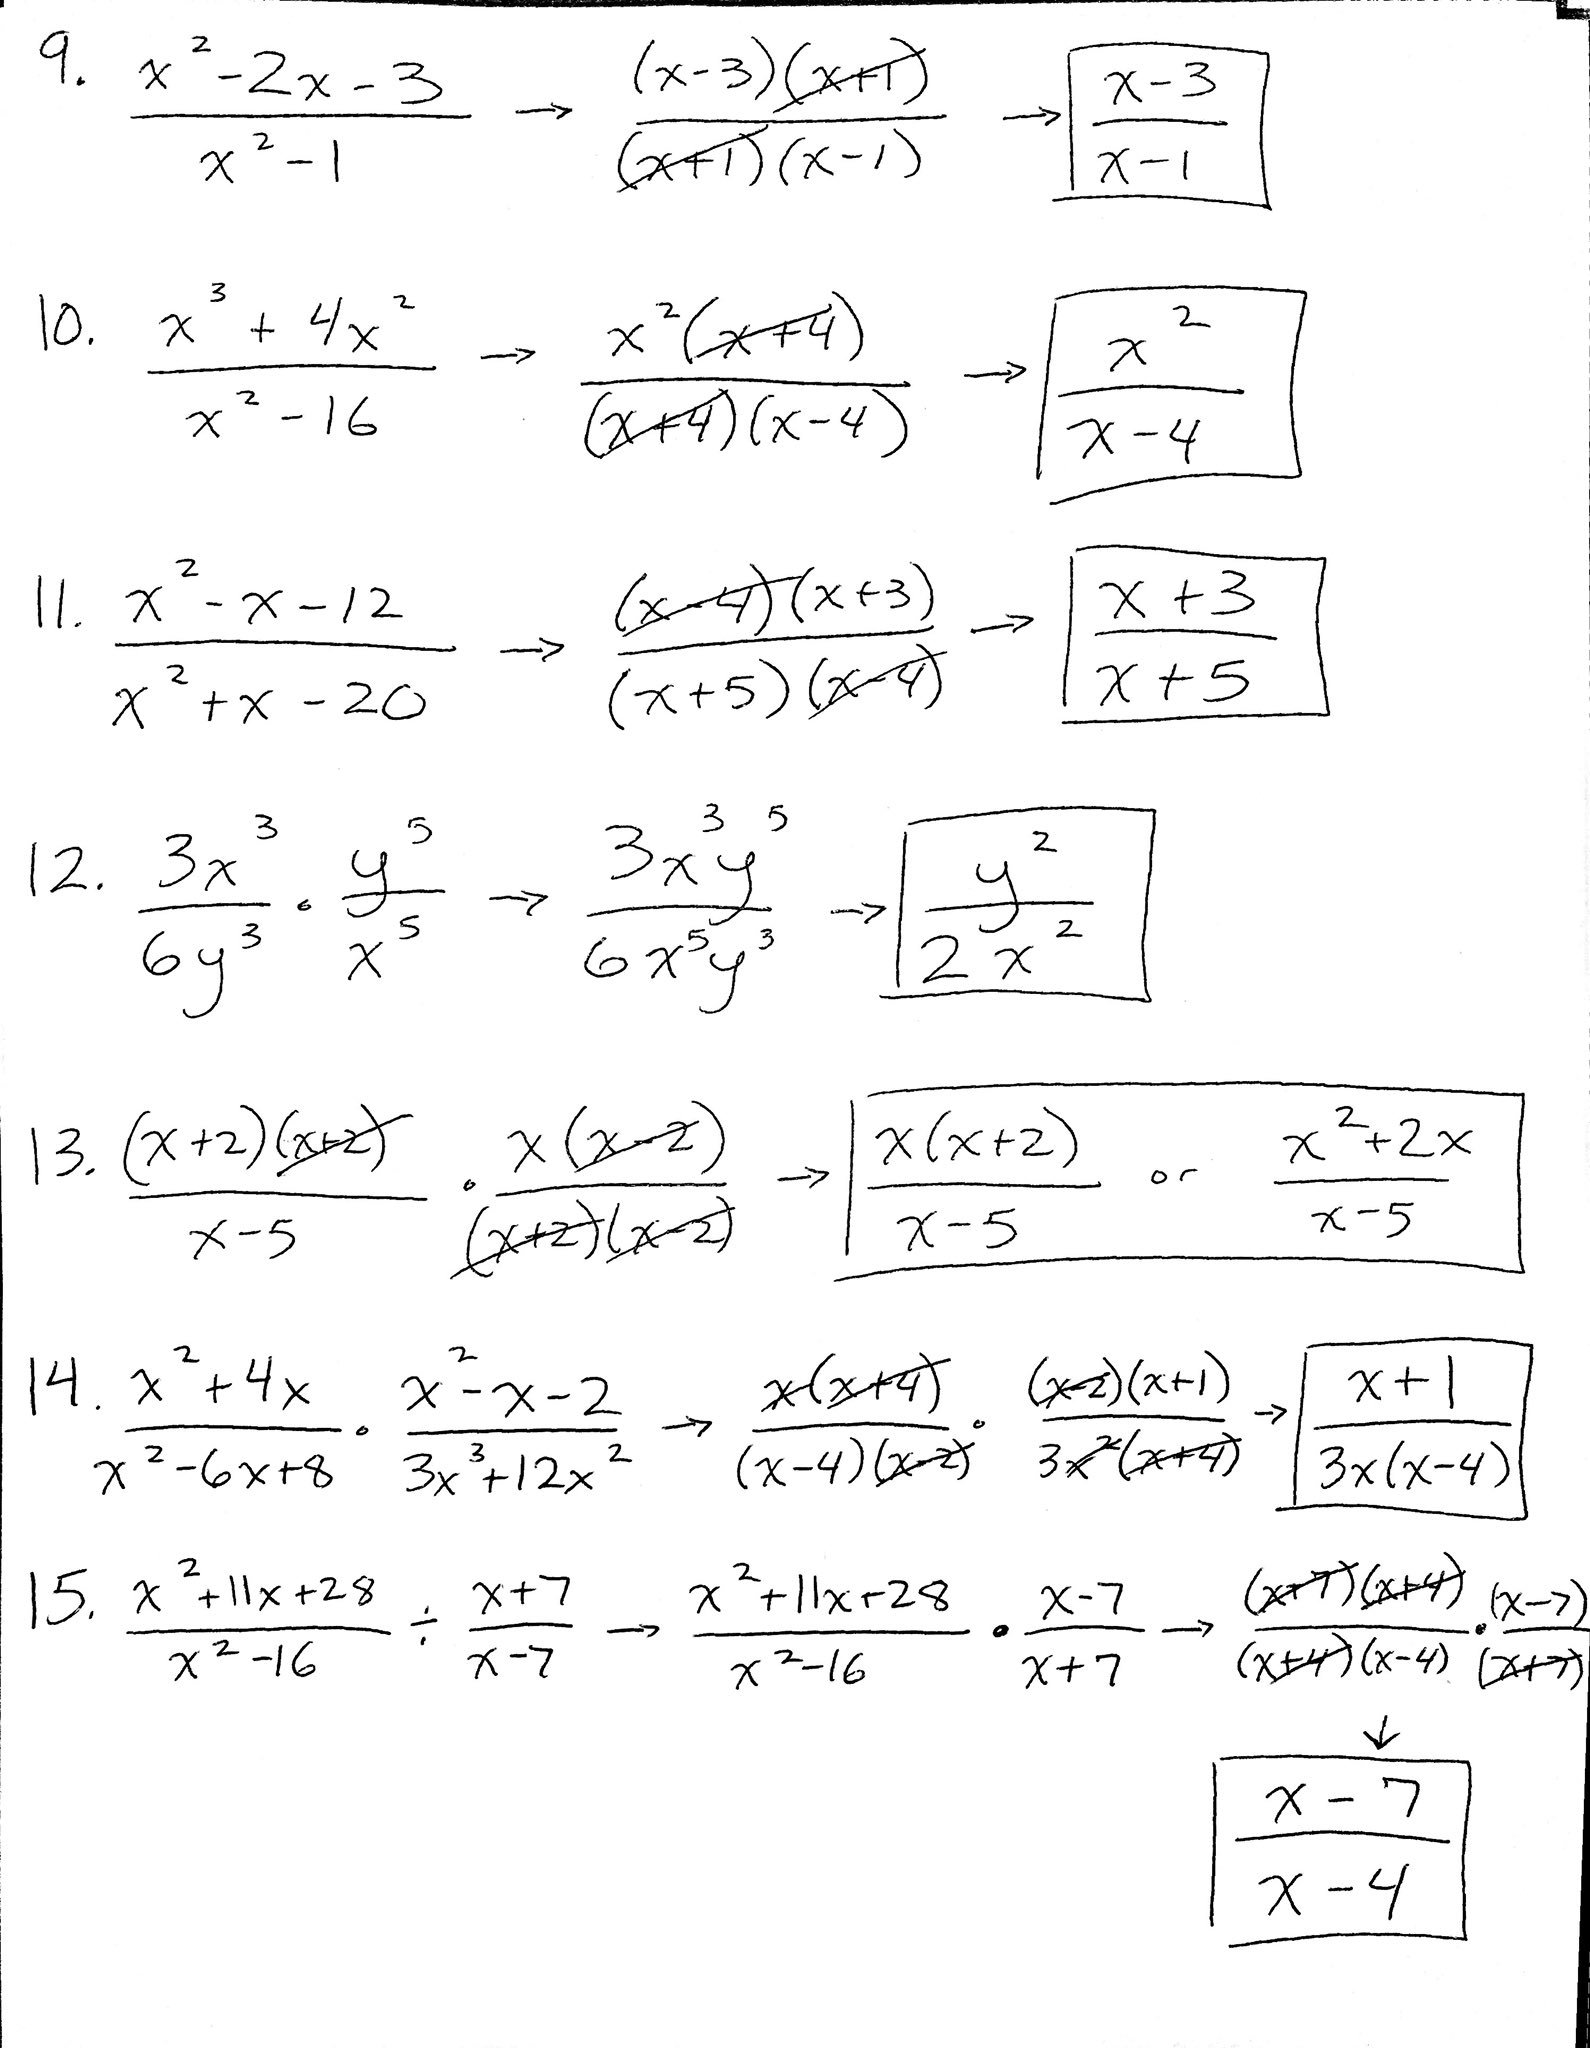 9. (x² - 2x - 3)/(x² - 1) → ((x-3)(x+1))/((x+1)(x-1)) → (x-3)/(x-1)
10. (x³ + 4x²)/(x² - 16) → (x²(x+4))/((x+4)(x-4)) → x²/(x-4)
11. (x² - x - 12)/(x² + x - 20) → ((x-4)(x+3))/((x+5)(x-4)) → (x+3)/(x+5)
12. 3x³/6y³ · y⁵/x⁵ → 3x³y⁵/6x⁵y³ → y²/2x²
13. ((x+2)(x+2))/(x-5) · (x(x-2))/((x+2)(x-2)) → (x(x+2))/(x-5) or (x²+2x)/(x-5)
14. (x²+4x)/(x²-6x+8) · (x²-x-2)/(3x³+12x²) → (x(x+4))/((x-4)(x-2)) · ((x-2)(x+1))/(3x²(x+4)) → (x+1)/(3x(x-4))
15. (x²+11x+28)/(x²-16) ÷ (x+7)/(x-7) → (x²+11x+28)/(x²-16) · (x-7)/(x+7) → ((x+7)(x+4))/((x+4)(x-4)) · (x-7)/(x+7)
↓
(x-7)/(x-4)